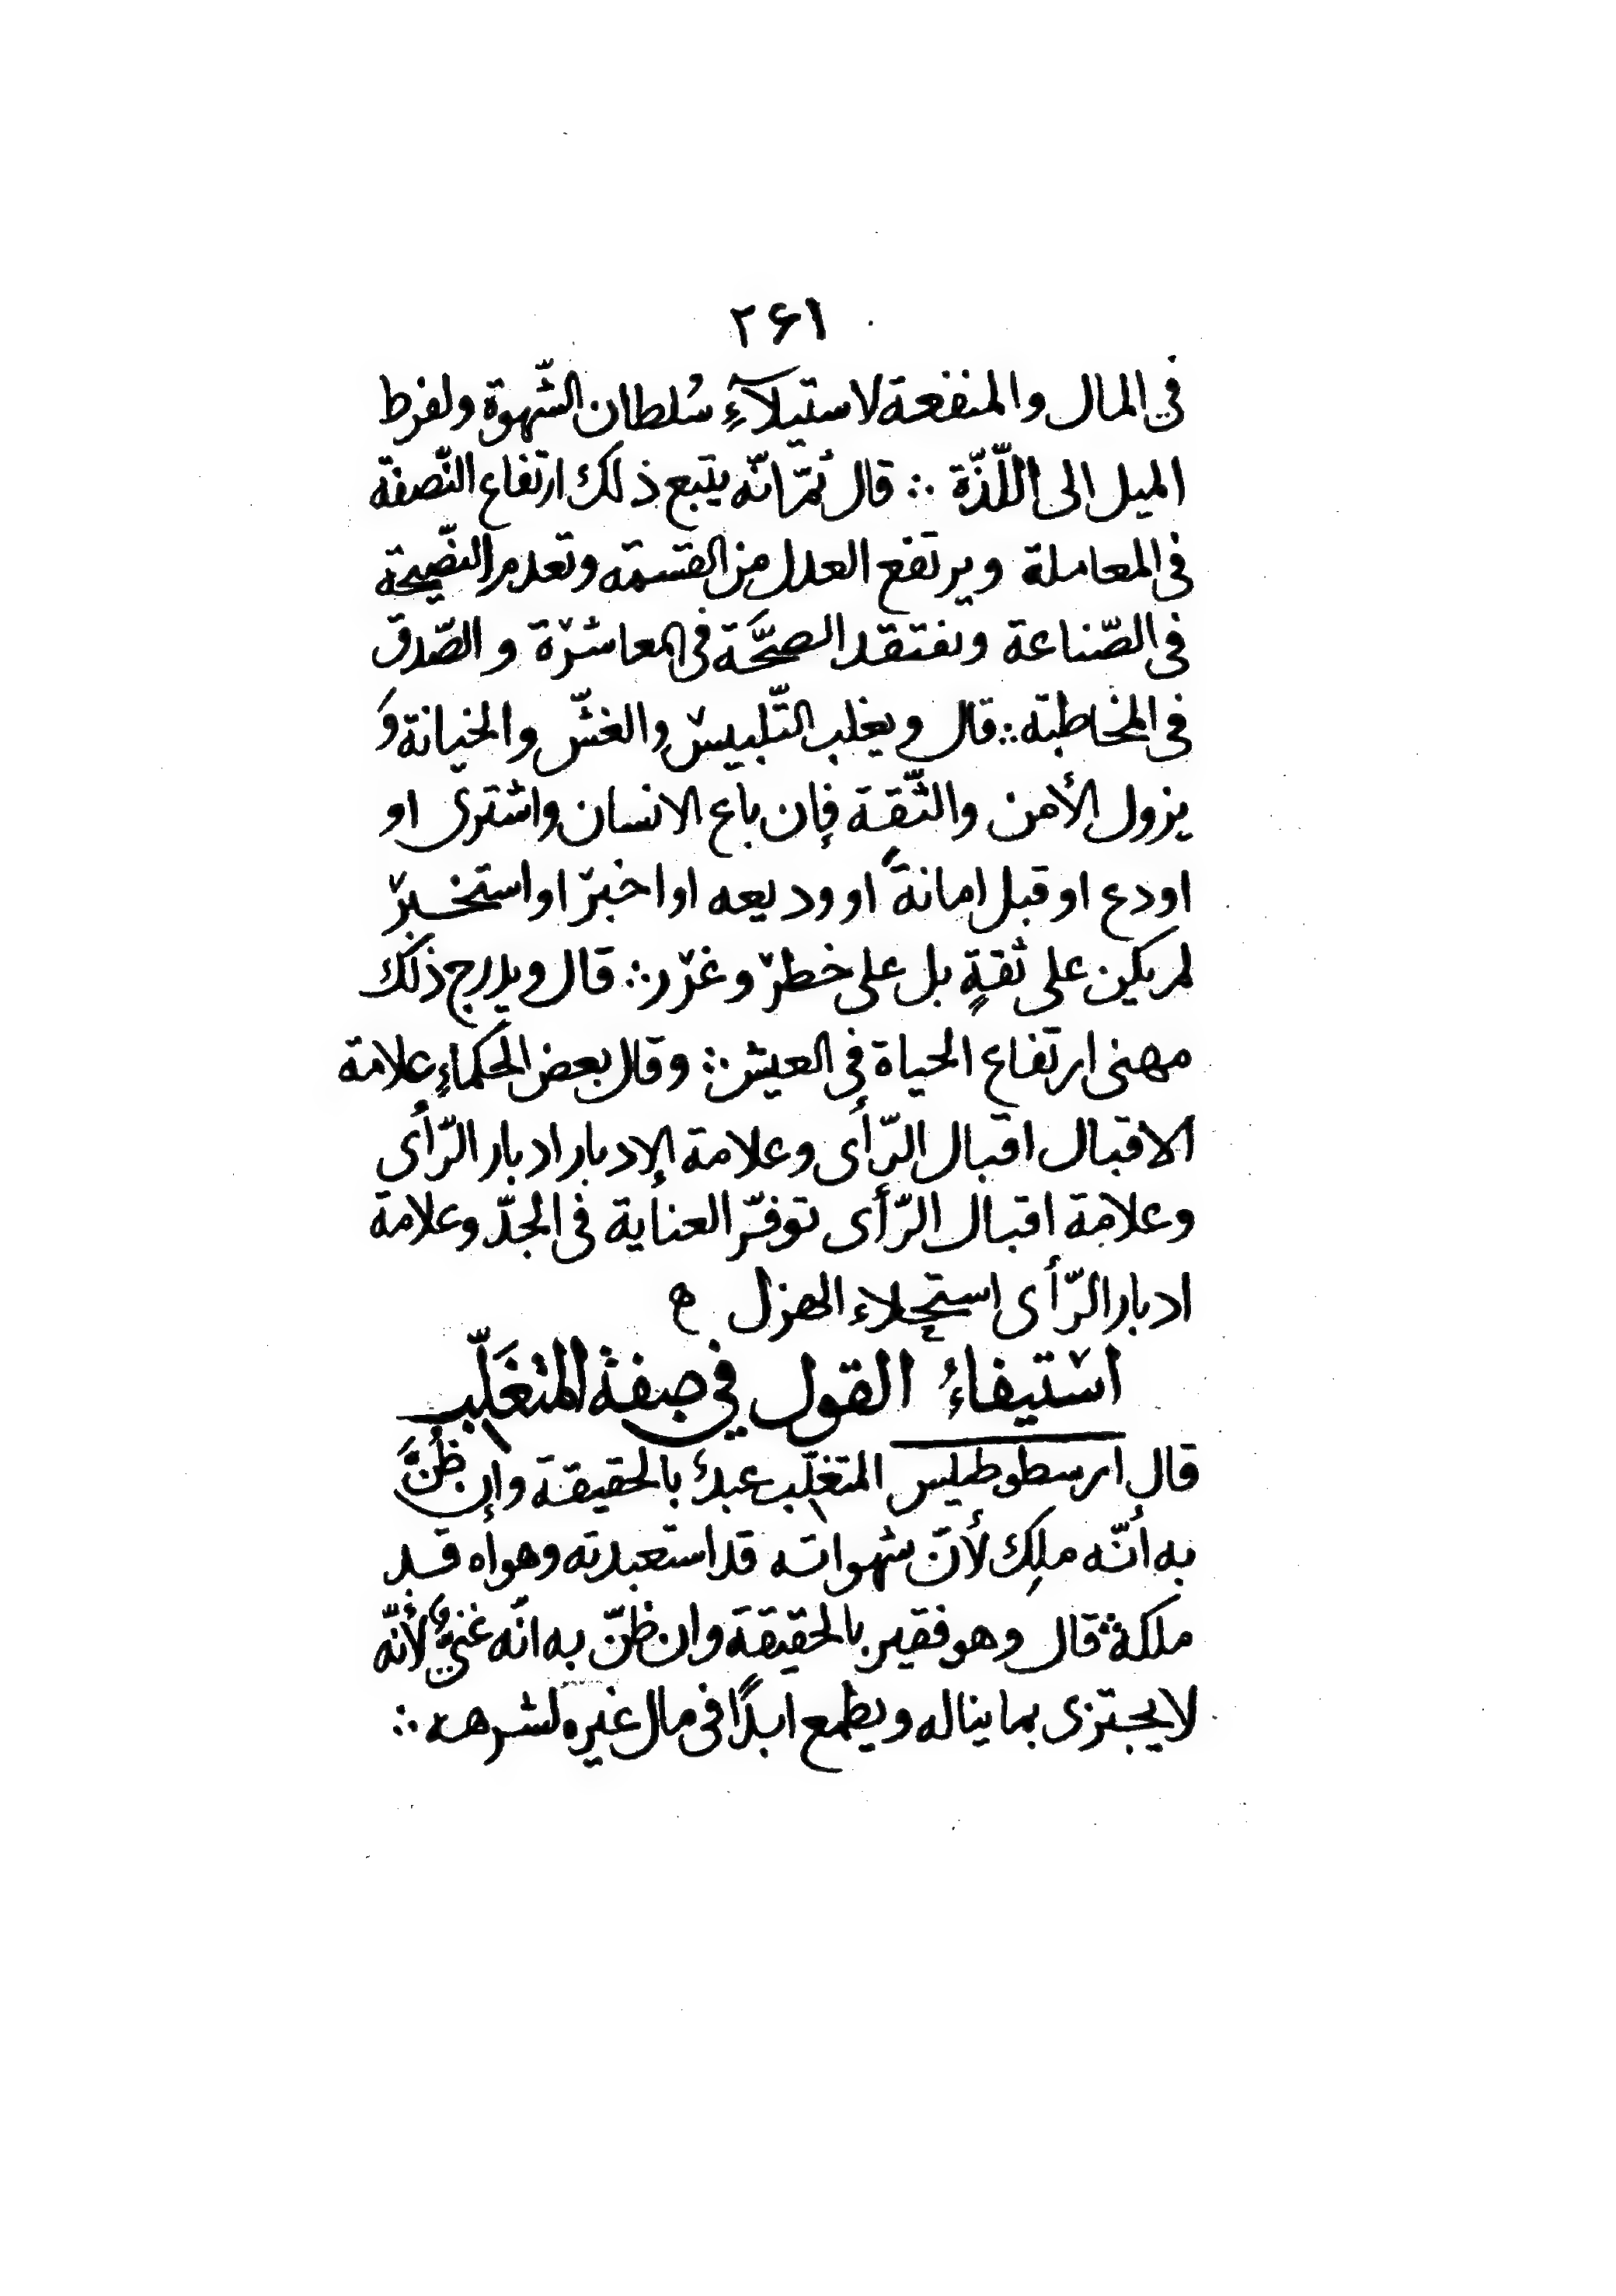 ۲۶۱
فى المال والمنفعة لاستيلآءِ سُلطان الشّهوة ولفرط
الميل الى اللّذّة ∴ قال ثمّ انّه يتبع ذلك ارتفاع النّصفة
فى المعاملة ويرتفع العدل من القسمة وتعدم النّصيحة
فى الصّناعة ونفتقد الصحَّة فى المعاشرة و الصّدق
فى المخاطبة ∴ قال ويغلب التّلبيس والغشّ والخيانة وَ
يزول الأمن والثّقة فإن باع الانسان واشترى او
اودع او قبل امانةً او وديعه او اخبر او استخبر
لم يكن على ثقةٍ بل على خطر وغرر ∴ قال ويدرج ذلك
مهنى ارتفاع الحياة فى العيش ∴ وقال بعض الحكماءِ علامة
الاقبال اقبال الرّأى وعلامة الإدبار ادبار الرّأى
وعلامة اقبال الرّأى توفّر العناية فى الجدّ وعلامة
ادبار الرّأى استحلاء الهزل ه
اسْتيفاءُ القول في صفة المتغَلّب
قال ارسطوطيلس المتغلّب عبدٌ بالحقيقة وإن ظُنَّ
به أنّه ملِك لأنّ شهواته قد استعبدته وهواه قد
ملكه ∴ قال وهو فقير بالحقيقة وان ظنّ به انّه غنيٌّ لأنّه
لا يجتزى بما يناله ويطمع ابدًا فى مال غيره لشرهه ∴